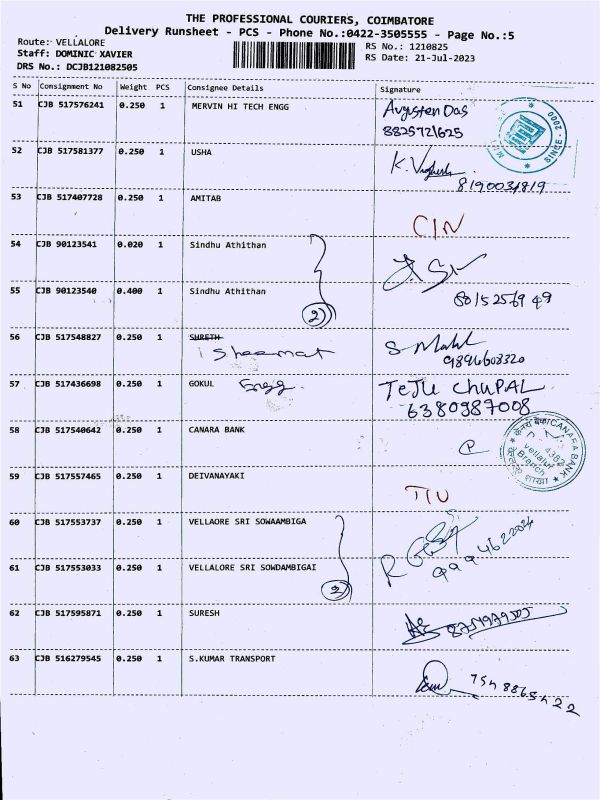 THE PROFESSIONAL COURIERS, COIMBATORE
Delivery Runsheet - PCS - Phone No.:0422-3505555 - Page No.:5
Route: VELLALORE
RS No.: 1210825
Staff: DOMINIC XAVIER
RS Date: 21-Jul-2023
DRS No.: DCJB121082505
S No Consignment No Weight PCS Consignee Details Signature
51 CJB 517576241 0.250 1 MERVIN HI TECH ENGG Augsten Das
8825721625
SINCE - 2000
52 CJB 517581377 0.250 1 USHA K.
8190034819
53 CJB 517407728 0.250 1 AMITAB
CIN
54 CJB 90123541 0.020 1 Sindhu Athithan
55 CJB 90123540 0.400 1 Sindhu Athithan
2
56 CJB 517548827 0.250 1 SURETH
9894608320
57 CJB 517436698 0.250 1 GOKUL Engg. TeJU ChUPAL
6380987008
58 CJB 517540642 0.250 1 CANARA BANK
CANARA BANK
Vellalur
Branch
शाखा
59 CJB 517557465 0.250 1 DEIVANAYAKI
60 CJB 517553737 0.250 1 VELLAORE SRI SOWAAMBIGA
61 CJB 517553033 0.250 1 VELLALORE SRI SOWDAMBIGAI
2
62 CJB 517595871 0.250 1 SURESH
63 CJB 516279545 0.250 1 S.KUMAR TRANSPORT
7548865422